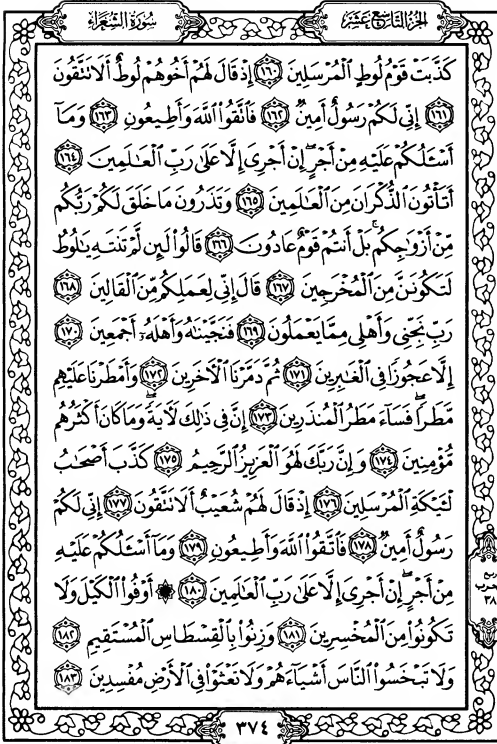 الجزء التاسع عشر
سورة الشعراء
كَذَّبَتْ قَوْمُ لُوطٍ ٱلْمُرْسَلِينَ ١٦٠ إِذْ قَالَ لَهُمْ أَخُوهُمْ لُوطٌ أَلَا تَتَّقُونَ
١٦١ إِنِّي لَكُمْ رَسُولٌ أَمِينٌ ١٦٢ فَٱتَّقُوا۟ ٱللَّهَ وَأَطِيعُونِ ١٦٣ وَمَآ
أَسْـَٔلُكُمْ عَلَيْهِ مِنْ أَجْرٍ ۖ إِنْ أَجْرِىَ إِلَّا عَلَىٰ رَبِّ ٱلْعَـٰلَمِينَ ١٦٤
أَتَأْتُونَ ٱلذُّكْرَانَ مِنَ ٱلْعَـٰلَمِينَ ١٦٥ وَتَذَرُونَ مَا خَلَقَ لَكُمْ رَبُّكُم
مِّنْ أَزْوَٰجِكُم ۚ بَلْ أَنتُمْ قَوْمٌ عَادُونَ ١٦٦ قَالُوا۟ لَئِن لَّمْ تَنتَهِ يَـٰلُوطُ
لَتَكُونَنَّ مِنَ ٱلْمُخْرَجِينَ ١٦٧ قَالَ إِنِّى لِعَمَلِكُم مِّنَ ٱلْقَالِينَ ١٦٨
رَبِّ نَجِّنِى وَأَهْلِى مِمَّا يَعْمَلُونَ ١٦٩ فَنَجَّيْنَـٰهُ وَأَهْلَهُۥٓ أَجْمَعِينَ ١٧٠
إِلَّا عَجُوزًا فِى ٱلْغَـٰبِرِينَ ١٧١ ثُمَّ دَمَّرْنَا ٱلْـَٔاخَرِينَ ١٧٢ وَأَمْطَرْنَا عَلَيْهِم
مَّطَرًا ۖ فَسَآءَ مَطَرُ ٱلْمُنذَرِينَ ١٧٣ إِنَّ فِى ذَٰلِكَ لَـَٔايَةً ۖ وَمَا كَانَ أَكْثَرُهُم
مُّؤْمِنِينَ ١٧٤ وَإِنَّ رَبَّكَ لَهُوَ ٱلْعَزِيزُ ٱلرَّحِيمُ ١٧٥ كَذَّبَ أَصْحَـٰبُ
لْـَٔيْكَةِ ٱلْمُرْسَلِينَ ١٧٦ إِذْ قَالَ لَهُمْ شُعَيْبٌ أَلَا تَتَّقُونَ ١٧٧ إِنِّى لَكُمْ
رَسُولٌ أَمِينٌ ١٧٨ فَٱتَّقُوا۟ ٱللَّهَ وَأَطِيعُونِ ١٧٩ وَمَآ أَسْـَٔلُكُمْ عَلَيْهِ
مِنْ أَجْرٍ ۖ إِنْ أَجْرِىَ إِلَّا عَلَىٰ رَبِّ ٱلْعَـٰلَمِينَ ١٨٠ ۞ أَوْفُوا۟ ٱلْكَيْلَ وَلَا
تَكُونُوا۟ مِنَ ٱلْمُخْسِرِينَ ١٨١ وَزِنُوا۟ بِٱلْقِسْطَاسِ ٱلْمُسْتَقِيمِ ١٨٢
وَلَا تَبْخَسُوا۟ ٱلنَّاسَ أَشْيَآءَهُمْ وَلَا تَعْثَوْا۟ فِى ٱلْأَرْضِ مُفْسِدِينَ ١٨٣
٣٨
٣٧٤